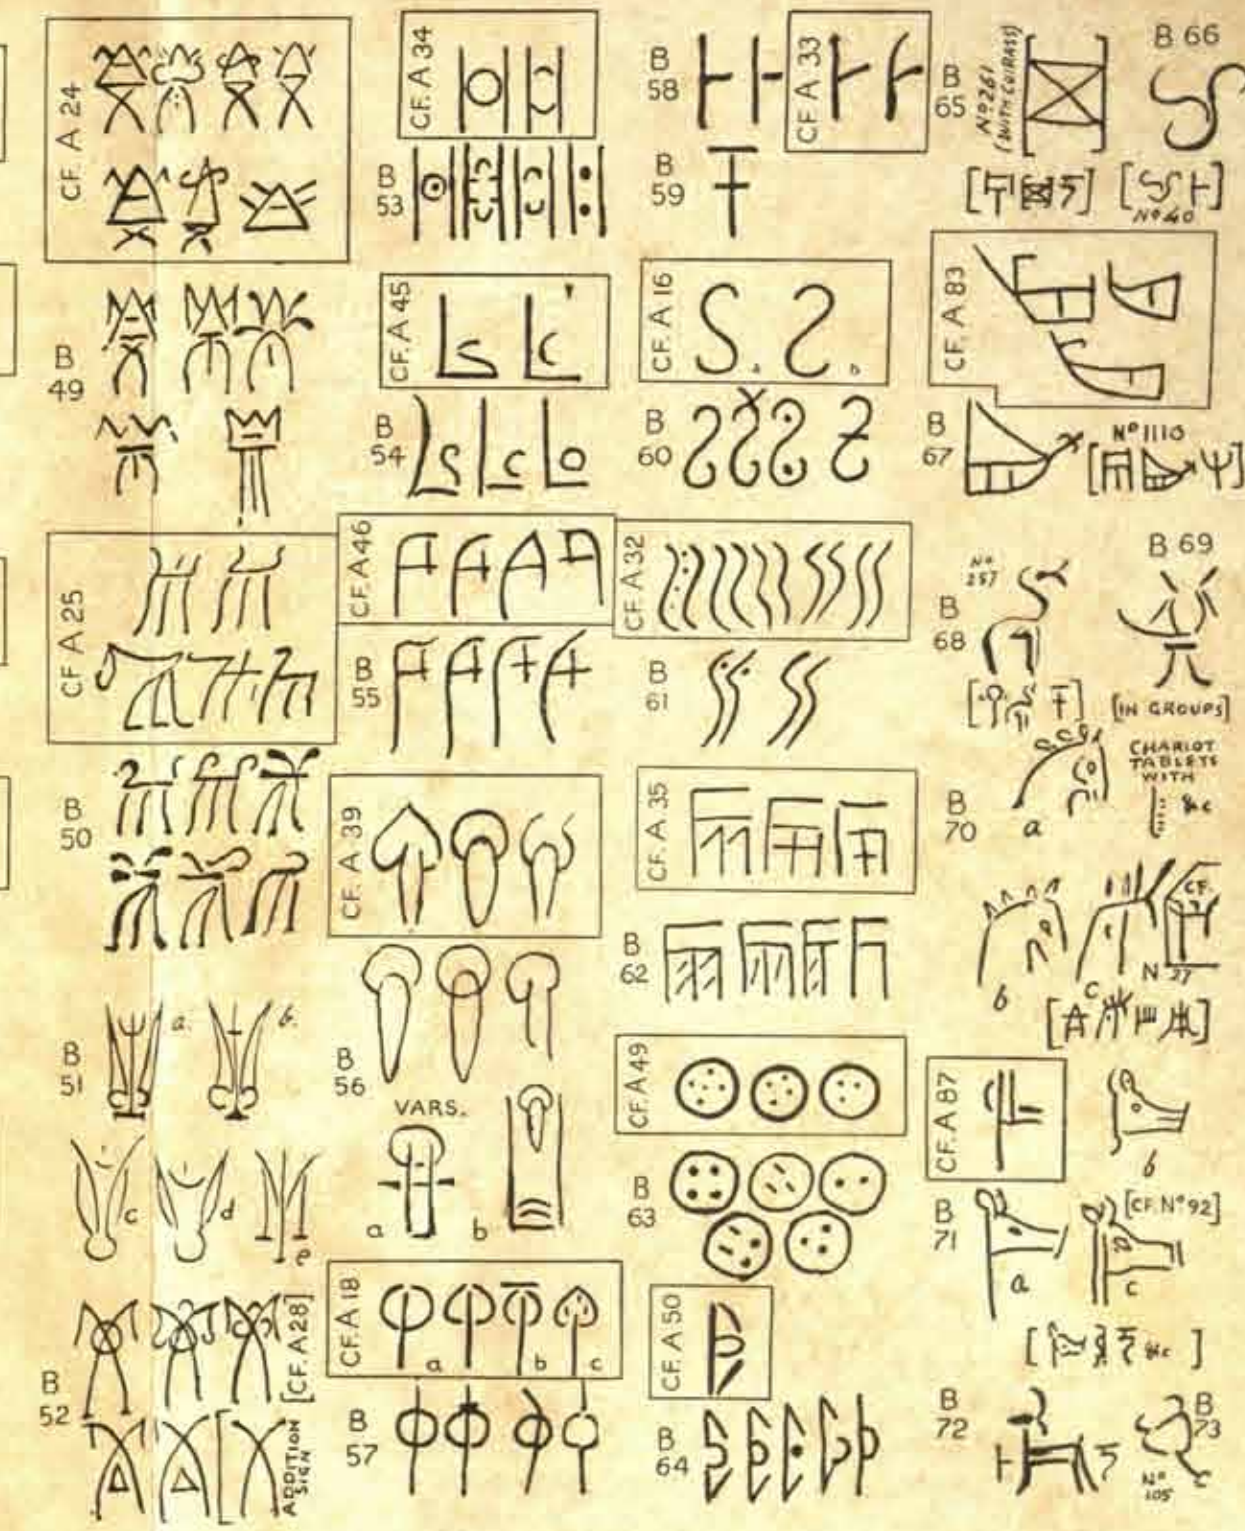 CF. A 24
B 49
CF A 25
B 50
B 51
a.
b.
c
d
e
B 52
[CF. A 28]
ADDITION SIGN
CF. A 34
B 53
CF. A 45
B 54
CF. A 46
B 55
CF. A 39
B 56
VARS.
a
b
CF. A 18
a
b
c
B 57
B 58
CF. A 33
B 59
CF. A 16
B 60
CF. A 32
B 61
CF. A 35
B 62
CF. A 49
B 63
CF. A 50
B 64
B 65
Nº 261
(WITH CUIRASS)
B 66
Nº 40
CF. A 83
B 67
Nº 1110
B 68
B 69
[IN GROUPS]
B 70
a
CHARIOT
TABLETS
WITH
&c
b
c
CF.
N 27
CF. A 87
B 71
a
b
[CF. Nº 92]
c
&c
B 72
B 73
Nº 105